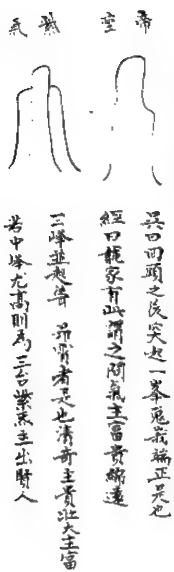 帝
氣
吳曰回頭之後突起一峯嵬峩端正是也
經曰龍家有此謂之氣主富貴綿遠
三峰並起皆昴霄者是也清奇主貴壯大主富
若中峰尤高則為三台紫炁主出財人